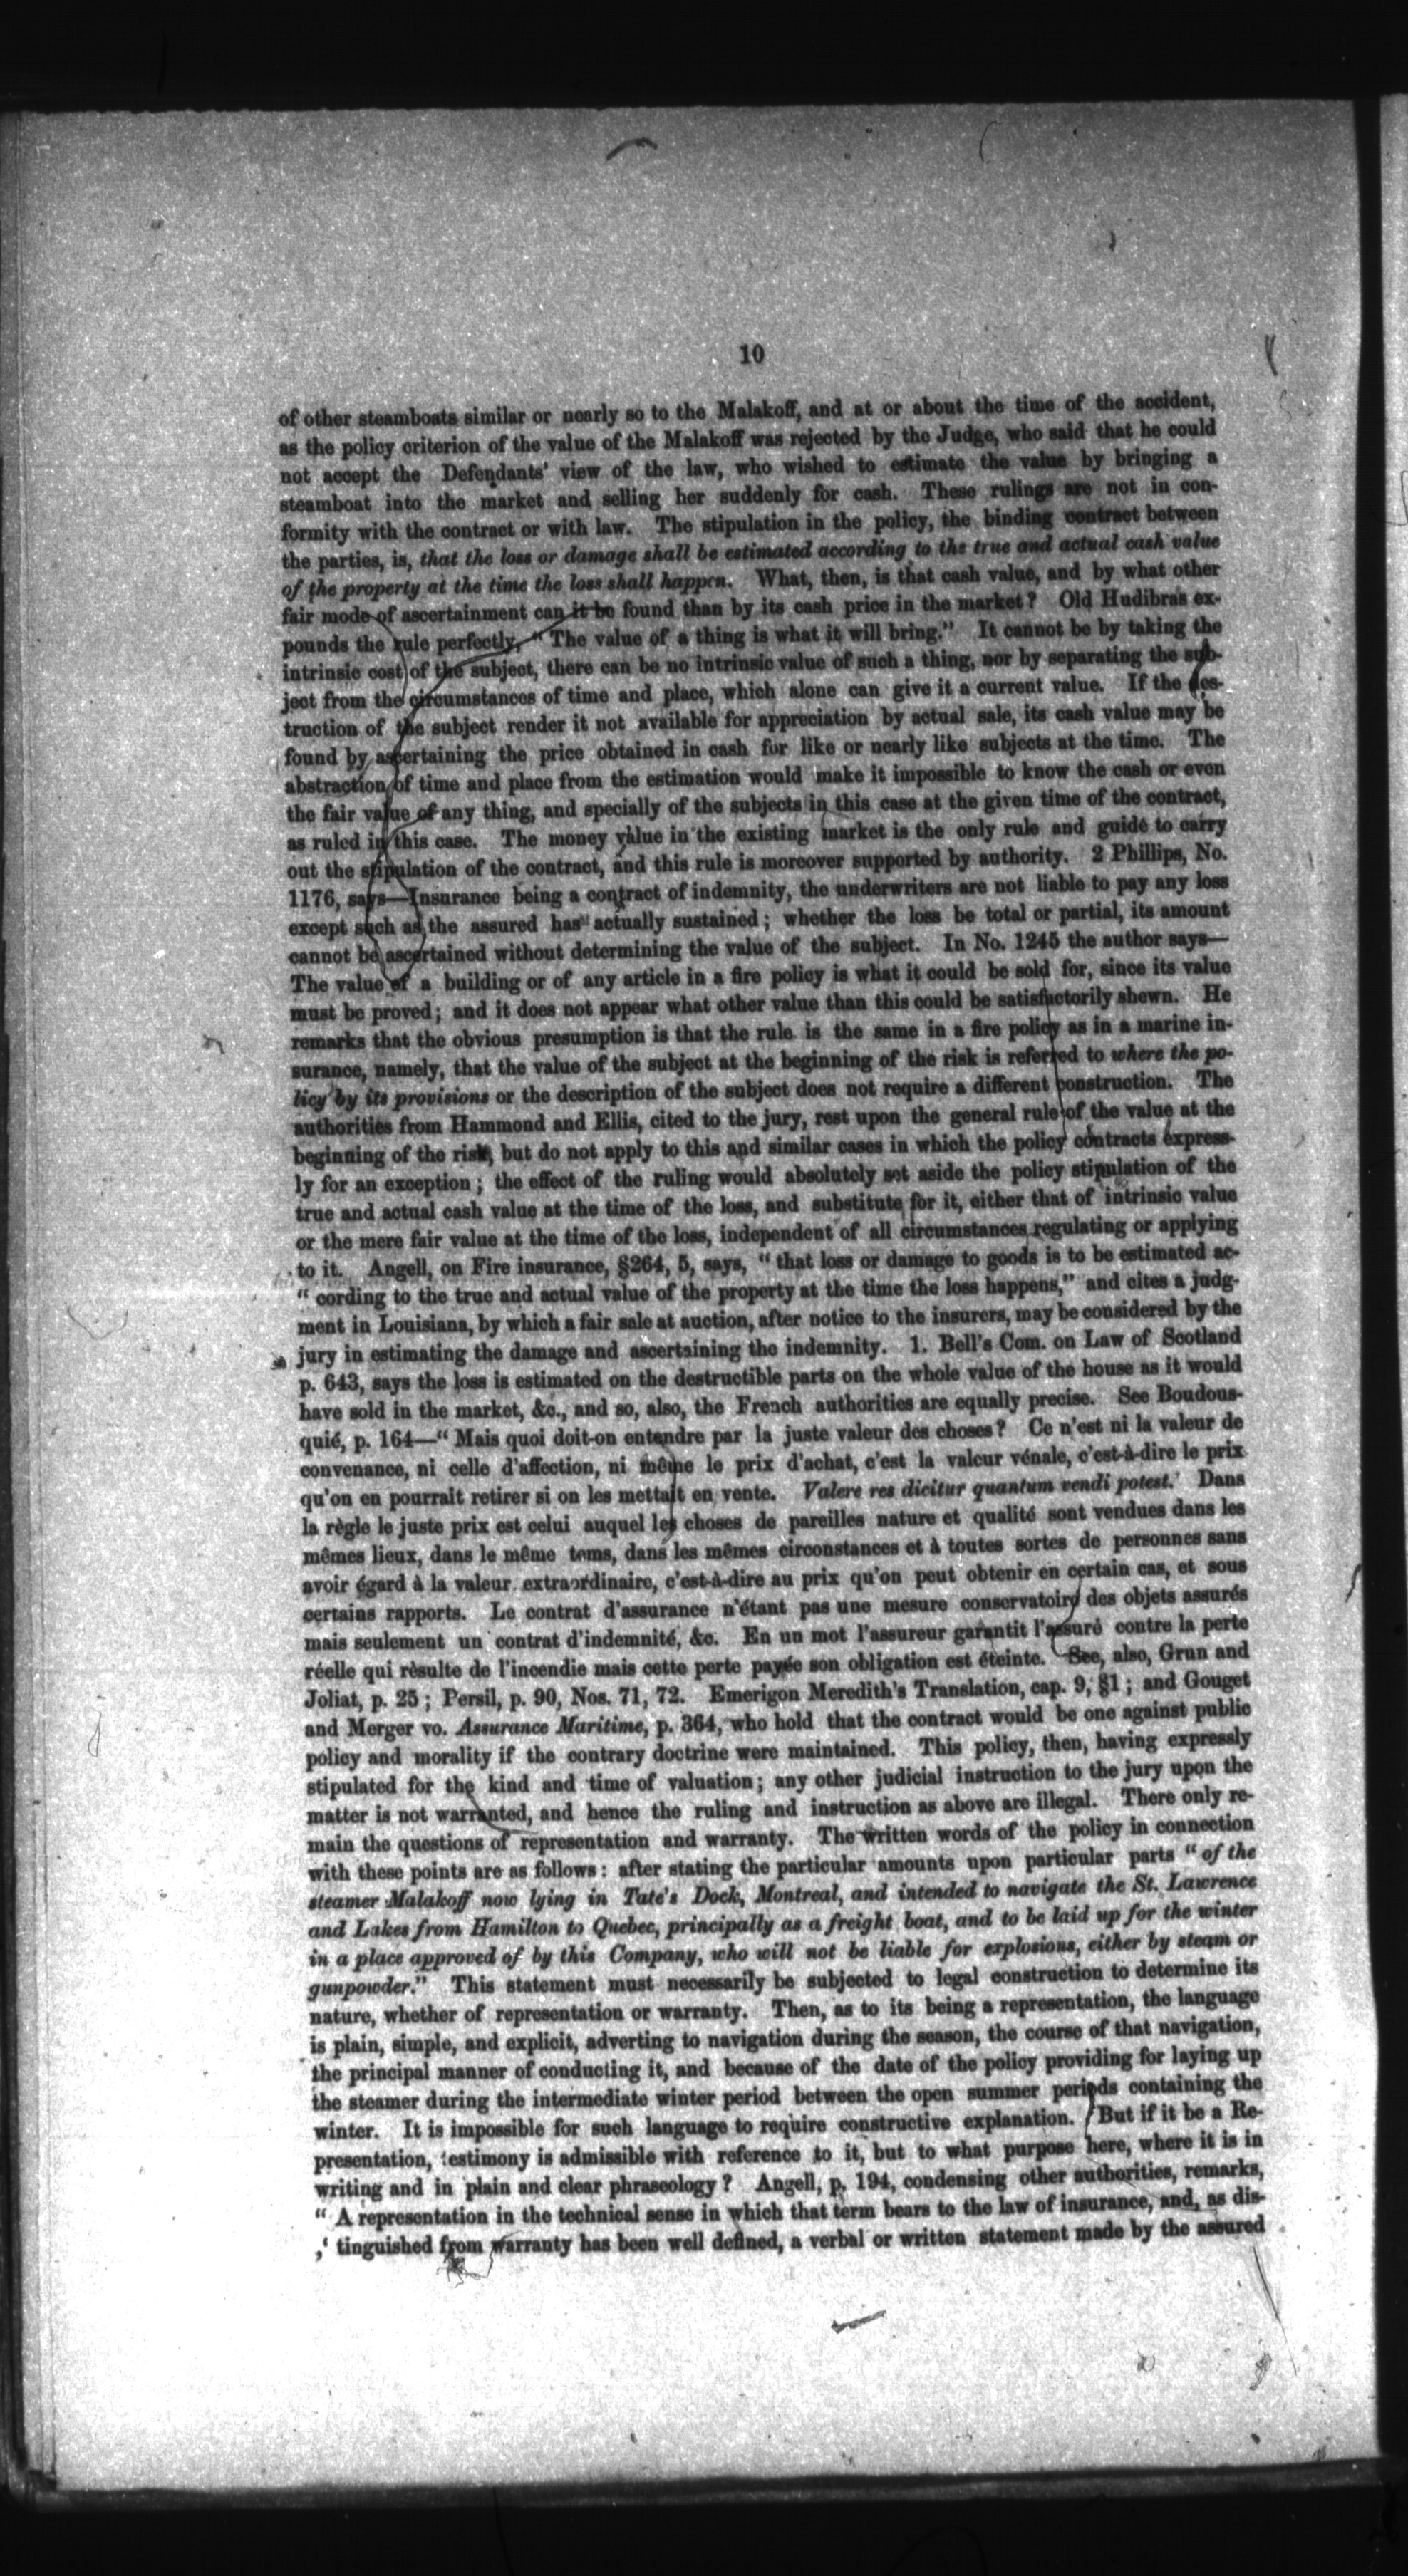 10
of other steamboats similar or nearly so to the Malakoff, and at or about the time of the accident,
as the policy criterion of the value of the Malakoff was rejected by the Judge, who said that he could
not accept the Defendants' view of the law, who wished to estimate the value by bringing a
steamboat into the market and selling her suddenly for cash. These rulings are not in con-
formity with the contract or with law. The stipulation in the policy, the binding contract between
the parties, is, that the loss or damage shall be estimated according to the true and actual cash value
of the property at the time the loss shall happen. What, then, is that cash value, and by what other
fair mode of ascertainment can it be found than by its cash price in the market? Old Hudibras ex-
pounds the rule perfectly, "The value of a thing is what it will bring." It cannot be by taking the
intrinsic cost of the subject, there can be no intrinsic value of such a thing, nor by separating the sub-
ject from the circumstances of time and place, which alone can give it a current value. If the des-
truction of the subject render it not available for appreciation by actual sale, its cash value may be
found by ascertaining the price obtained in cash for like or nearly like subjects at the time. The
abstraction of time and place from the estimation would make it impossible to know the cash or even
the fair value of any thing, and specially of the subjects in this case at the given time of the contract,
as ruled in this case. The money value in the existing market is the only rule and guide to carry
out the stipulation of the contract, and this rule is moreover supported by authority. 2 Phillips, No.
1176, says—Insurance being a contract of indemnity, the underwriters are not liable to pay any loss
except such as the assured has actually sustained; whether the loss be total or partial, its amount
cannot be ascertained without determining the value of the subject. In No. 1245 the author says—
The value of a building or of any article in a fire policy is what it could be sold for, since its value
must be proved; and it does not appear what other value than this could be satisfactorily shewn. He
remarks that the obvious presumption is that the rule is the same in a fire policy as in a marine in-
surance, namely, that the value of the subject at the beginning of the risk is referred to where the po-
licy by its provisions or the description of the subject does not require a different construction. The
authorities from Hammond and Ellis, cited to the jury, rest upon the general rule of the value at the
beginning of the risk, but do not apply to this and similar cases in which the policy contracts express-
ly for an exception; the effect of the ruling would absolutely set aside the policy stipulation of the
true and actual cash value at the time of the loss, and substitute for it, either that of intrinsic value
or the mere fair value at the time of the loss, independent of all circumstances regulating or applying
to it. Angell, on Fire insurance, §264, 5, says, "that loss or damage to goods is to be estimated ac-
"cording to the true and actual value of the property at the time the loss happens," and cites a judg-
ment in Louisiana, by which a fair sale at auction, after notice to the insurers, may be considered by the
jury in estimating the damage and ascertaining the indemnity. 1. Bell's Com. on Law of Scotland
p. 643, says the loss is estimated on the destructible parts on the whole value of the house as it would
have sold in the market, &c., and so, also, the French authorities are equally precise. See Boudous-
quié, p. 164—"Mais quoi doit-on entendre par la juste valeur des choses? Ce n'est ni la valeur de
convenance, ni celle d'affection, ni même le prix d'achat, c'est la valeur vénale, c'est-à-dire le prix
qu'on en pourrait retirer si on les mettait en vente. Valere res dicitur quantum vendi potest. Dans
la règle le juste prix est celui auquel les choses de pareilles nature et qualité sont vendues dans les
mêmes lieux, dans le même tems, dans les mêmes circonstances et à toutes sortes de personnes sans
avoir égard à la valeur extraordinaire, c'est-à-dire au prix qu'on peut obtenir en certain cas, et sous
certains rapports. Le contrat d'assurance n'étant pas une mesure conservatoire des objets assurés
mais seulement un contrat d'indemnité, &c. En un mot l'assureur garantit l'assuré contre la perte
réelle qui rèsulte de l'incendie mais cette perte payée son obligation est éteinte. See, also, Grun and
Joliat, p. 25; Persil, p. 90, Nos. 71, 72. Emerigon Meredith's Translation, cap. 9, §1; and Gouget
and Merger vo. Assurance Maritime, p. 364, who hold that the contract would be one against public
policy and morality if the contrary doctrine were maintained. This policy, then, having expressly
stipulated for the kind and time of valuation; any other judicial instruction to the jury upon the
matter is not warranted, and hence the ruling and instruction as above are illegal. There only re-
main the questions of representation and warranty. The written words of the policy in connection
with these points are as follows: after stating the particular amounts upon particular parts "of the
steamer Malakoff now lying in Tate's Dock, Montreal, and intended to navigate the St. Lawrence
and Lakes from Hamilton to Quebec, principally as a freight boat, and to be laid up for the winter
in a place approved of by this Company, who will not be liable for explosions, either by steam or
gunpowder." This statement must necessarily be subjected to legal construction to determine its
nature, whether of representation or warranty. Then, as to its being a representation, the language
is plain, simple, and explicit, adverting to navigation during the season, the course of that navigation,
the principal manner of conducting it, and because of the date of the policy providing for laying up
the steamer during the intermediate winter period between the open summer periods containing the
winter. It is impossible for such language to require constructive explanation. But if it be a Re-
presentation, testimony is admissible with reference to it, but to what purpose here, where it is in
writing and in plain and clear phraseology? Angell, p. 194, condensing other authorities, remarks,
"A representation in the technical sense in which that term bears to the law of insurance, and, as dis-
,' tinguished from warranty has been well defined, a verbal or written statement made by the assured